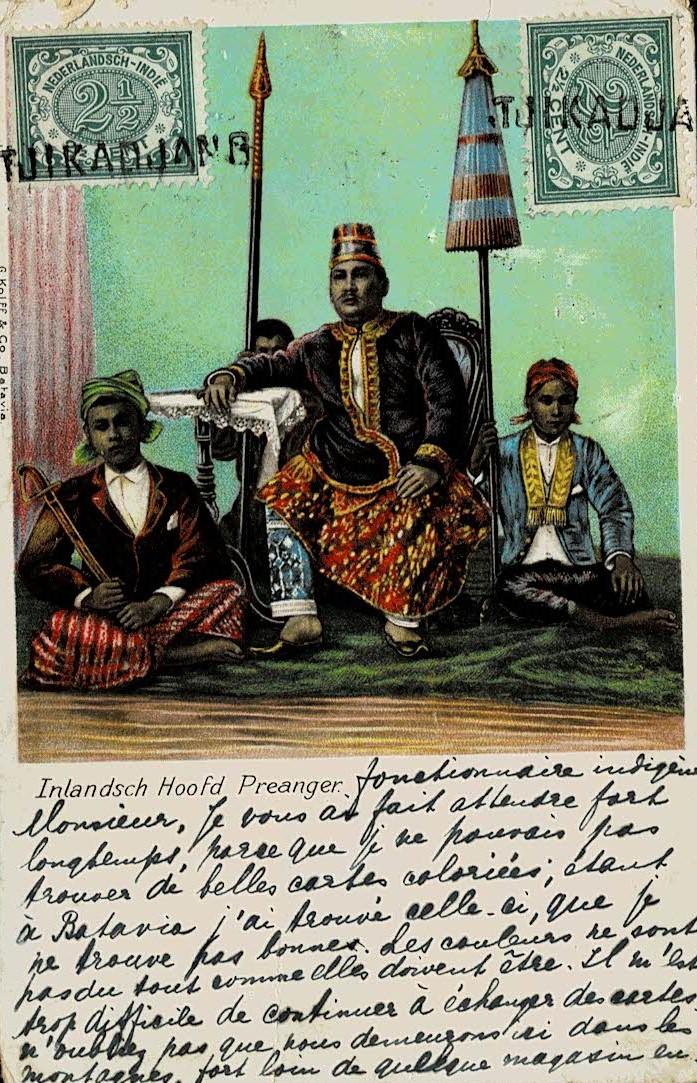 NEDERLANDSCH-INDIË
2½
CENT
TJIKADJANG
NEDERLANDSCH-INDIË
2½ CENT
TJIKADJA
G. Kolff & Co. Batavia.
Inlandsch Hoofd Preanger. fonctionnaire indigène
Monsieur, Je vous ai fait attendre fort
longtemps, parce que je ne pouvais pas
trouver de belles cartes coloriées; étant
à Batavia j'ai trouvé celle-ci, que je
ne trouve pas bonnes. Les couleurs ne sont
pas du tout comme elles doivent être. Il m'est
trop difficile de continuer à échanger des cartes
n'oubliez pas que nous demeurons ici dans les
montagnes, fort loin de quelque magasin en